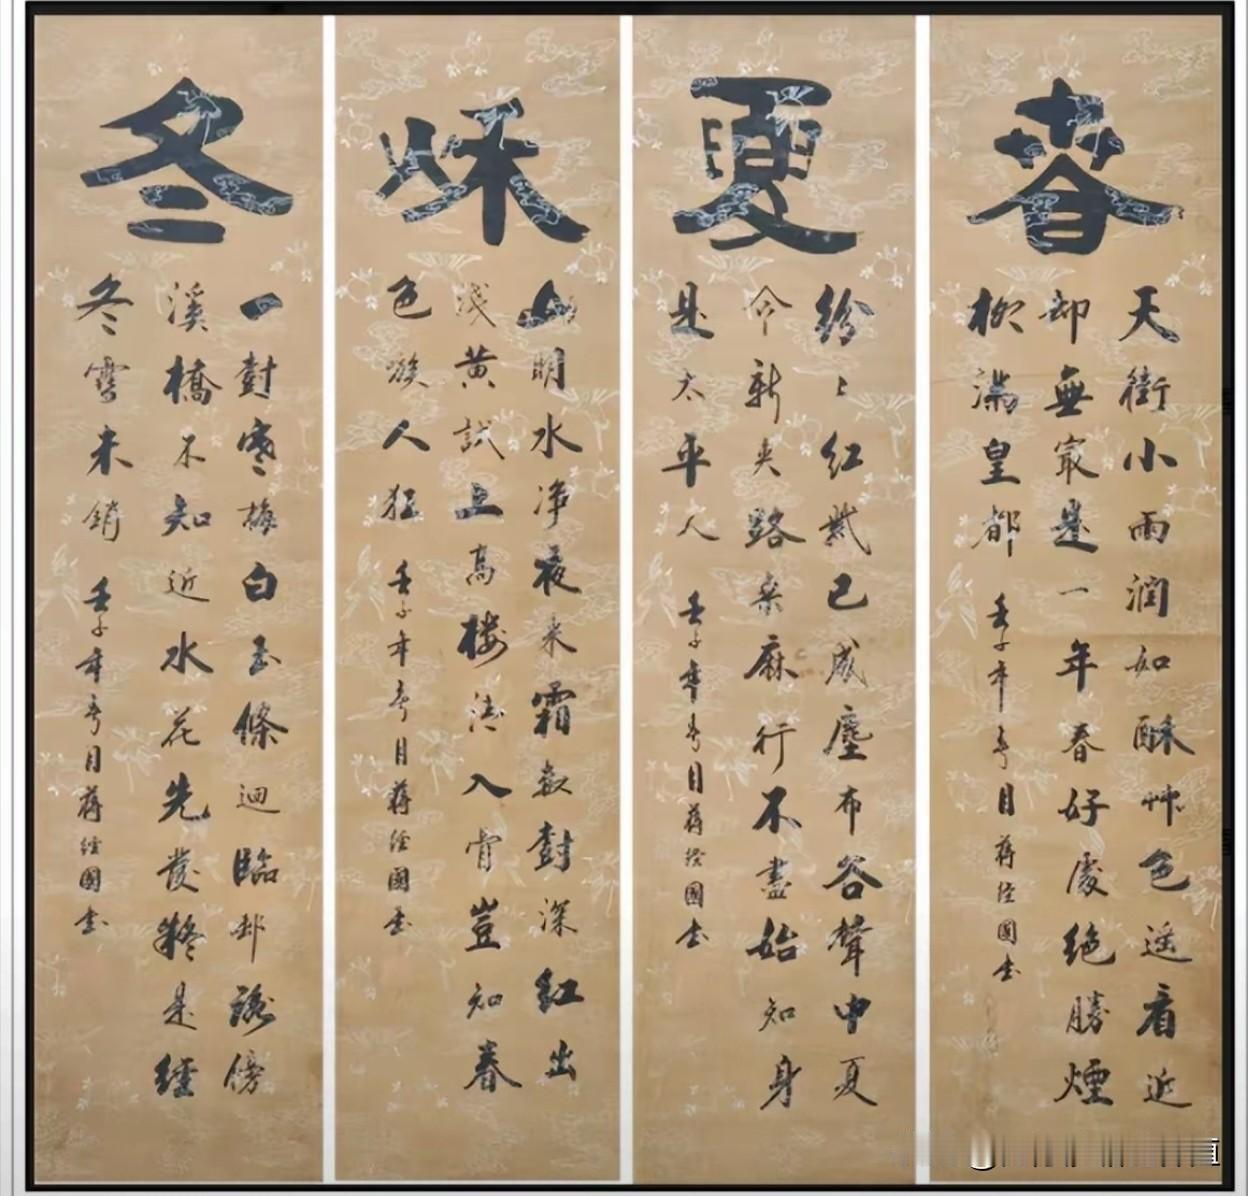 春
天街小雨潤如酥艸色遥看近
却無㝡是一年春好處絶勝煙
柳滿皇都
壬子年春月蔣经國書
夏
紛〻紅紫已成塵布谷聲中夏
令新夹路桑麻行不盡始知身
是太平人
壬子年春月蔣经國書
秋
山明水净夜来霜數尌深紅出
浅黄試上高楼清入骨豈知春
色嗾人狂
壬子年春月蔣经國書
冬
一尌寒梅白玉條迴臨邨路傍
溪橋不知近水花先發疑是經
冬雪未銷
壬子年春月蔣经國書